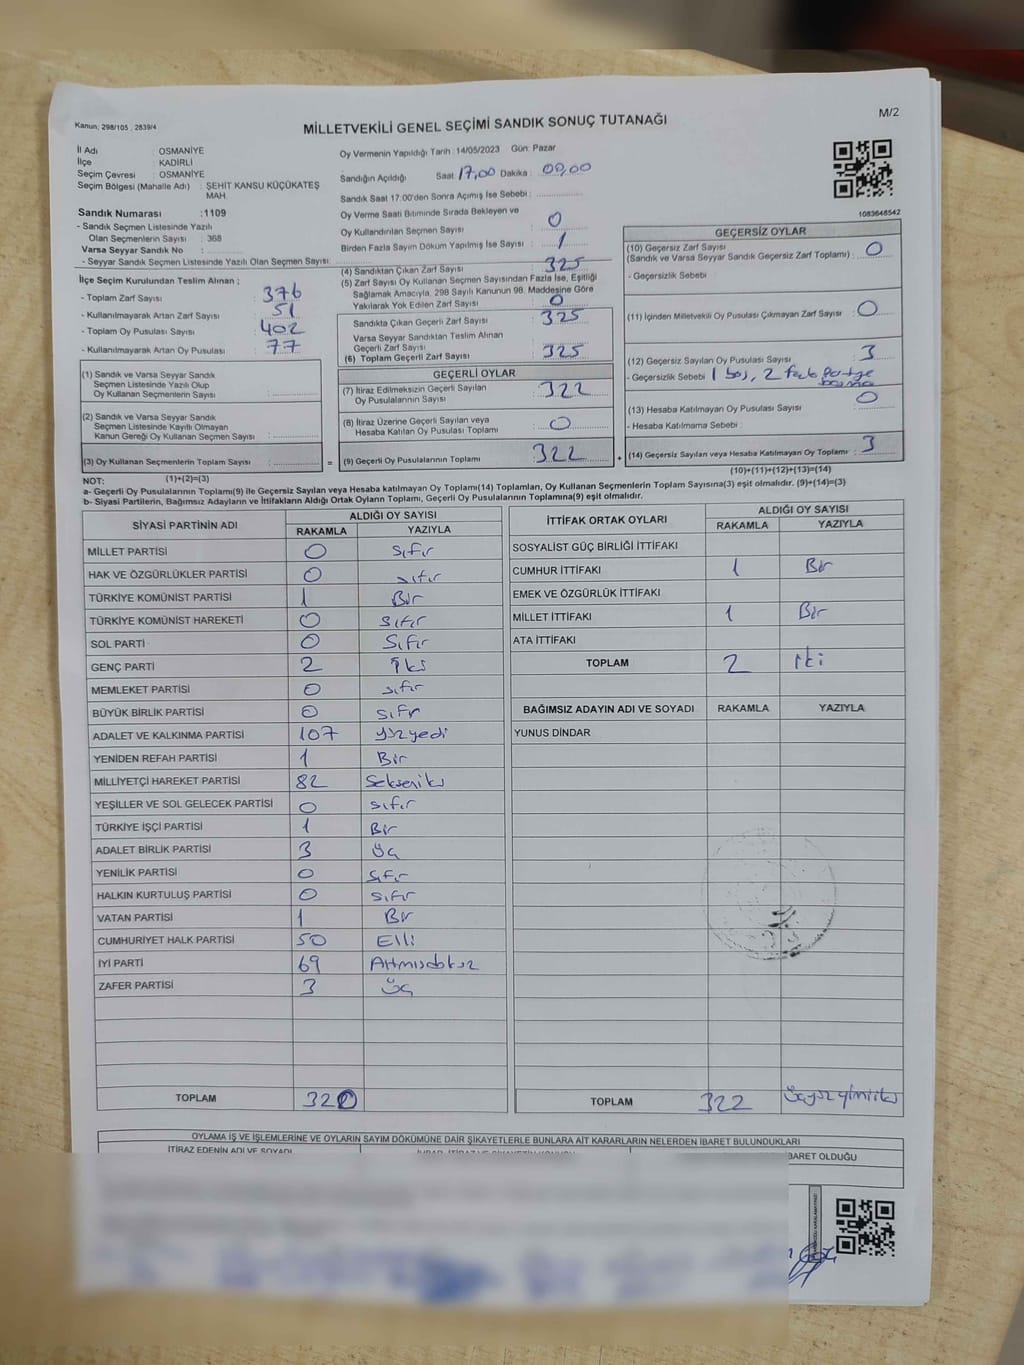 M/2
Kanun; 298/105 , 2839/4
MİLLETVEKİLİ GENEL SEÇİMİ SANDIK SONUÇ TUTANAĞI
İl Adı : OSMANİYE
İlçe : KADİRLİ
Seçim Çevresi : OSMANİYE
Seçim Bölgesi (Mahalle Adı) : ŞEHİT KANSU KÜÇÜKATEŞ
MAH.
Sandık Numarası :1109
- Sandık Seçmen Listesinde Yazılı
Olan Seçmenlerin Sayısı : 368
Varsa Seyyar Sandık No :
- Seyyar Sandık Seçmen Listesinde Yazılı Olan Seçmen Sayısı:
İlçe Seçim Kurulundan Teslim Alınan ;
- Toplam Zarf Sayısı : 376
- Kullanılmayarak Artan Zarf Sayısı : 51
- Toplam Oy Pusulası Sayısı : 402
- Kullanılmayarak Artan Oy Pusulası : 77
(1) Sandık ve Varsa Seyyar Sandık
Seçmen Listesinde Yazılı Olup
Oy Kullanan Seçmenlerin Sayısı :
(2) Sandık ve Varsa Seyyar Sandık
Seçmen Listesinde Kayıtlı Olmayan
Kanun Gereği Oy Kullanan Seçmen Sayısı :
(3) Oy Kullanan Seçmenlerin Toplam Sayısı :
Oy Vermenin Yapıldığı Tarih :14/05/2023 Gün: Pazar
Sandığın Açıldığı Saat :17,00 Dakika : 00,00
Sandık Saat 17.00'den Sonra Açımış İse Sebebi :
Oy Verme Saati Bitiminde Sırada Bekleyen ve
Oy Kullandırılan Seçmen Sayısı : 0
Birden Fazla Sayım Döküm Yapılmış İse Sayısı : 1
(4) Sandıktan Çıkan Zarf Sayısı : 325
(5) Zarf Sayısı Oy Kullanan Seçmen Sayısından Fazla İse, Eşitliği
Sağlamak Amacıyla, 298 Sayılı Kanunun 98. Maddesine Göre
Yakılarak Yok Edilen Zarf Sayısı : 0
Sandıkta Çıkan Geçerli Zarf Sayısı : 325
Varsa Seyyar Sandıktan Teslim Alınan
Geçerli Zarf Sayısı :
(6) Toplam Geçerli Zarf Sayısı : 325
GEÇERLİ OYLAR
(7) İtiraz Edilmeksizin Geçerli Sayılan
Oy Pusulalarının Sayısı : 322
(8) İtiraz Üzerine Geçerli Sayılan veya
Hesaba Katılan Oy Pusulası Toplamı : 0
= (9) Geçerli Oy Pusulalarının Toplamı : 322 +
1083648542
GEÇERSİZ OYLAR
(10) Geçersiz Zarf Sayısı
(Sandık ve Varsa Seyyar Sandık Geçersiz Zarf Toplamı) : 0
- Geçersizlik Sebebi :
(11) İçinden Milletvekili Oy Pusulası Çıkmayan Zarf Sayısı : 0
(12) Geçersiz Sayılan Oy Pusulası Sayısı : 3
- Geçersizlik Sebebi : 1 boş, 2 fazla partiye
basma
(13) Hesaba Katılmayan Oy Pusulası Sayısı : 0
- Hesaba Katılmama Sebebi :
(14) Geçersiz Sayılan veya Hesaba Katılmayan Oy Toplamı : 3
NOT: (1)+(2)=(3) (10)+(11)+(12)+(13)=(14)
a- Geçerli Oy Pusulalarının Toplamı(9) ile Geçersiz Sayılan veya Hesaba Katılmayan Oy Toplamı(14) Toplamları, Oy Kullanan Seçmenlerin Toplam Sayısına(3) eşit olmalıdır. (9)+(14)=(3)
b- Siyasi Partilerin, Bağımsız Adayların ve İttifakların Aldığı Ortak Oyların Toplamı, Geçerli Oy Pusulalarının Toplamına(9) eşit olmalıdır.
SİYASİ PARTİNİN ADI ALDIĞI OY SAYISI
RAKAMLA YAZIYLA
MİLLET PARTİSİ 0 sıfır
HAK VE ÖZGÜRLÜKLER PARTİSİ 0 sıfır
TÜRKİYE KOMÜNİST PARTİSİ 1 Bir
TÜRKİYE KOMÜNİST HAREKETİ 0 sıfır
SOL PARTİ 0 Sıfır
GENÇ PARTİ 2 iki
MEMLEKET PARTİSİ 0 sıfır
BÜYÜK BİRLİK PARTİSİ 0 sıfır
ADALET VE KALKINMA PARTİSİ 107 yüzyedi
YENİDEN REFAH PARTİSİ 1 Bir
MİLLİYETÇİ HAREKET PARTİSİ 82 Sekseniki
YEŞİLLER VE SOL GELECEK PARTİSİ 0 sıfır
TÜRKİYE İŞÇİ PARTİSİ 1 Bir
ADALET BİRLİK PARTİSİ 3 üç
YENİLİK PARTİSİ 0 sıfır
HALKIN KURTULUŞ PARTİSİ 0 sıfır
VATAN PARTİSİ 1 Bir
CUMHURİYET HALK PARTİSİ 50 Elli
İYİ PARTİ 69 Altmışdokuz
ZAFER PARTİSİ 3 üç
TOPLAM 320
İTTİFAK ORTAK OYLARI ALDIĞI OY SAYISI
RAKAMLA YAZIYLA
SOSYALİST GÜÇ BİRLİĞİ İTTİFAKI
CUMHUR İTTİFAKI 1 Bir
EMEK VE ÖZGÜRLÜK İTTİFAKI
MİLLET İTTİFAKI 1 Bir
ATA İTTİFAKI
TOPLAM 2 iki
BAĞIMSIZ ADAYIN ADI VE SOYADI RAKAMLA YAZIYLA
YUNUS DİNDAR
TOPLAM 322 üçyüzyirmiiki
OYLAMA İŞ VE İŞLEMLERİNE VE OYLARIN SAYIM DÖKÜMÜNE DAİR ŞİKAYETLERLE BUNLARA AİT KARARLARIN NELERDEN İBARET BULUNDUKLARI
İTİRAZ EDENİN ADI VE SOYADI
İBARET OLDUĞU